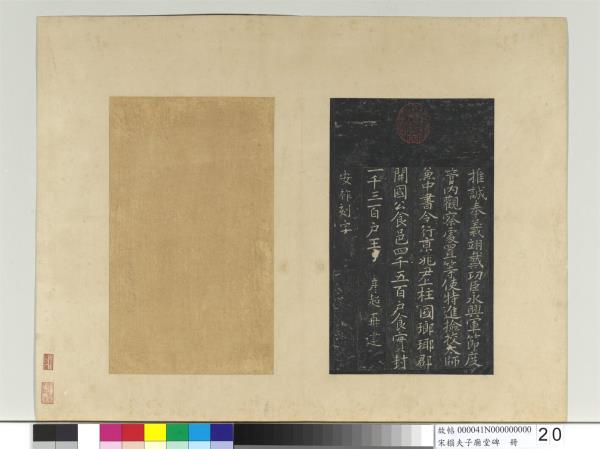 推誠奉義翊戴功臣永興軍節度
管內觀察處置等使特進檢校太師
兼中書令行京兆尹上柱國瑯瑘郡
開國公食邑四千五百戶食實封
一千三百戶王彥超再建
安祚刻字
故帖 000041N000000000
宋搨夫子廟堂碑 冊
20